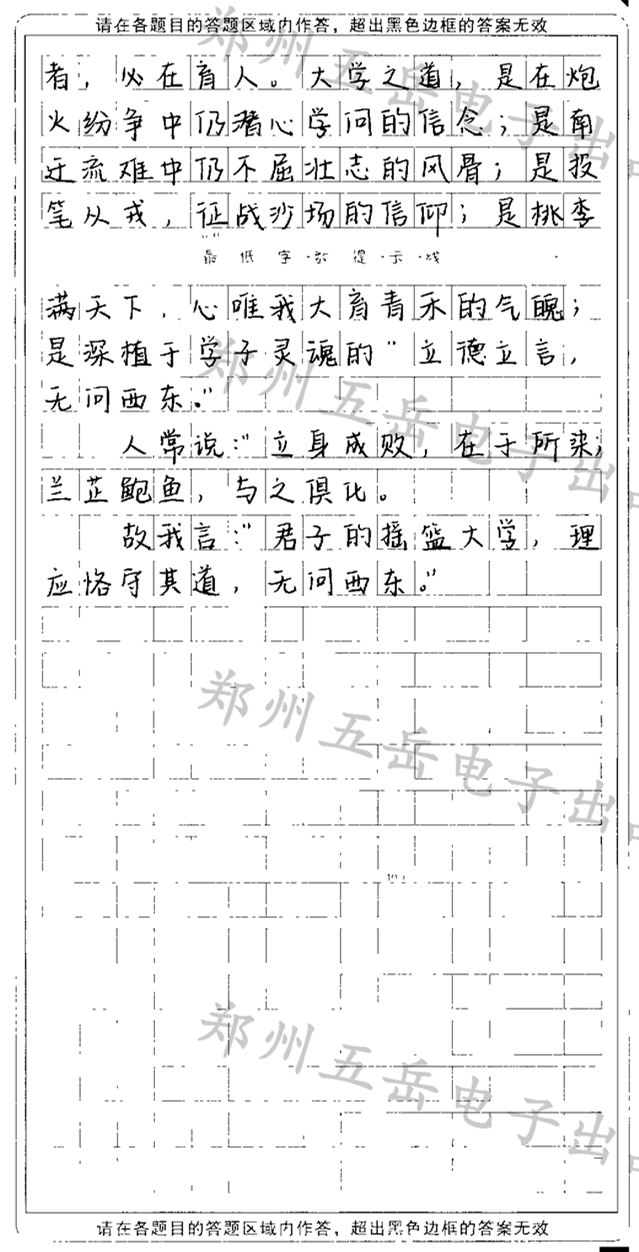 请在各题目的答题区域内作答，超出黑色边框的答案无效
者，必在育人。大学之道，是在炮
火纷争中仍潜心学问的信念；是南
迁流难中仍不屈壮志的风骨；是投
笔从戎，征战沙场的信仰；是桃李
最低字数提示线
满天下，心唯我大育青禾的气魄；
是深植于学子灵魂的“立德立言，
无问西东。”
人常说：“立身成败，在于所染；
兰芷鲍鱼，与之俱化。
故我言：“君子的摇篮大学，理
应恪守其道，无问西东。”
郑州五岳电子出
郑州五岳电子出
郑州五岳电子出
郑州五岳电子出
请在各题目的答题区域内作答，超出黑色边框的答案无效